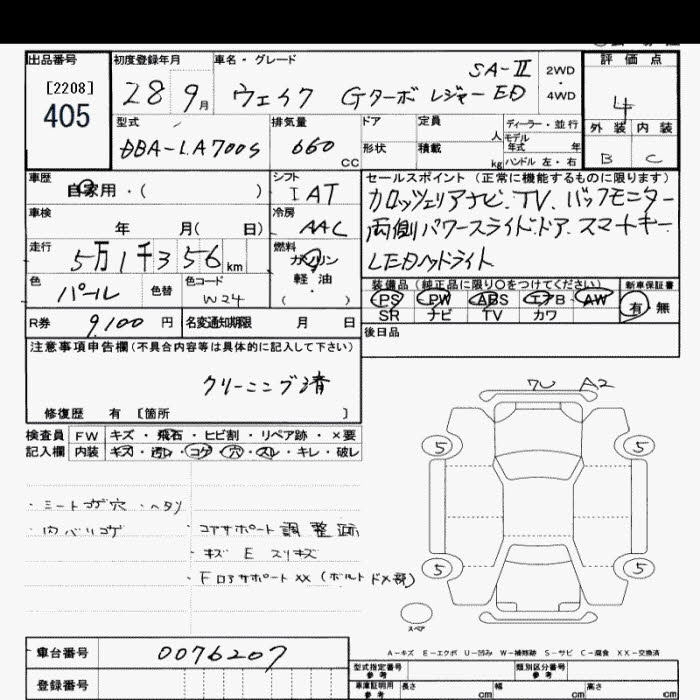 出品番号 初度登録年月 車名・グレード 評価点
[2208]
405
28 9月 ウェイク Gターボ レジャーED SA-Ⅱ 2WD・4WD 4
型式 排気量 ドア 定員 人 ディーラー・並行 外装 内装
DBA-LA700S 660 CC 形状 積載 kg モデル年式 年 ハンドル 左・右 B C
車歴 自家用・( ) シフト IAT セールスポイント (正常に機能するものに限ります)
カロッツェリアナビ. TV. バックモニター
車検 年 月( 日) 冷房 AAC 両側パワースライドドア スマートキー
走行 5万1千356km 燃料 ガソリン 軽油 ( ) LEDヘッドライト
色 パール 色替 色コード W24 装備品(純正品に限り○をつけてください) 新車保証書
PS PW ABS エアB AW 有・無
R券 9,100円 名変通知期限 月 日 SR ナビ TV カワ
後日品
注意事項申告欄(不具合内容等は具体的に記入して下さい)
クリーニング済
修復歴 有 [箇所 ]
7U A2
検査員 FW キズ・飛石・ヒビ割・リペア跡・×要
記入欄 内装 キズ・汚レ・コゲ・穴・スレ・キレ・破レ
5 5
・シートコゲ穴・ヘタリ
・内バリコゲ ・コアサポート調整跡
・キズ E スリキズ
・Fロアサポート××(ボルトドメ部)
5 5
スペア
A-キズ E-エクボ U-凹み W-補修跡 S-サビ C-腐食 XX-交換済
車台番号 0076207 型式指定番号 参考 類別区分番号 参考
登録番号 車庫証明用 参考 長さ cm 幅 cm 高さ cm